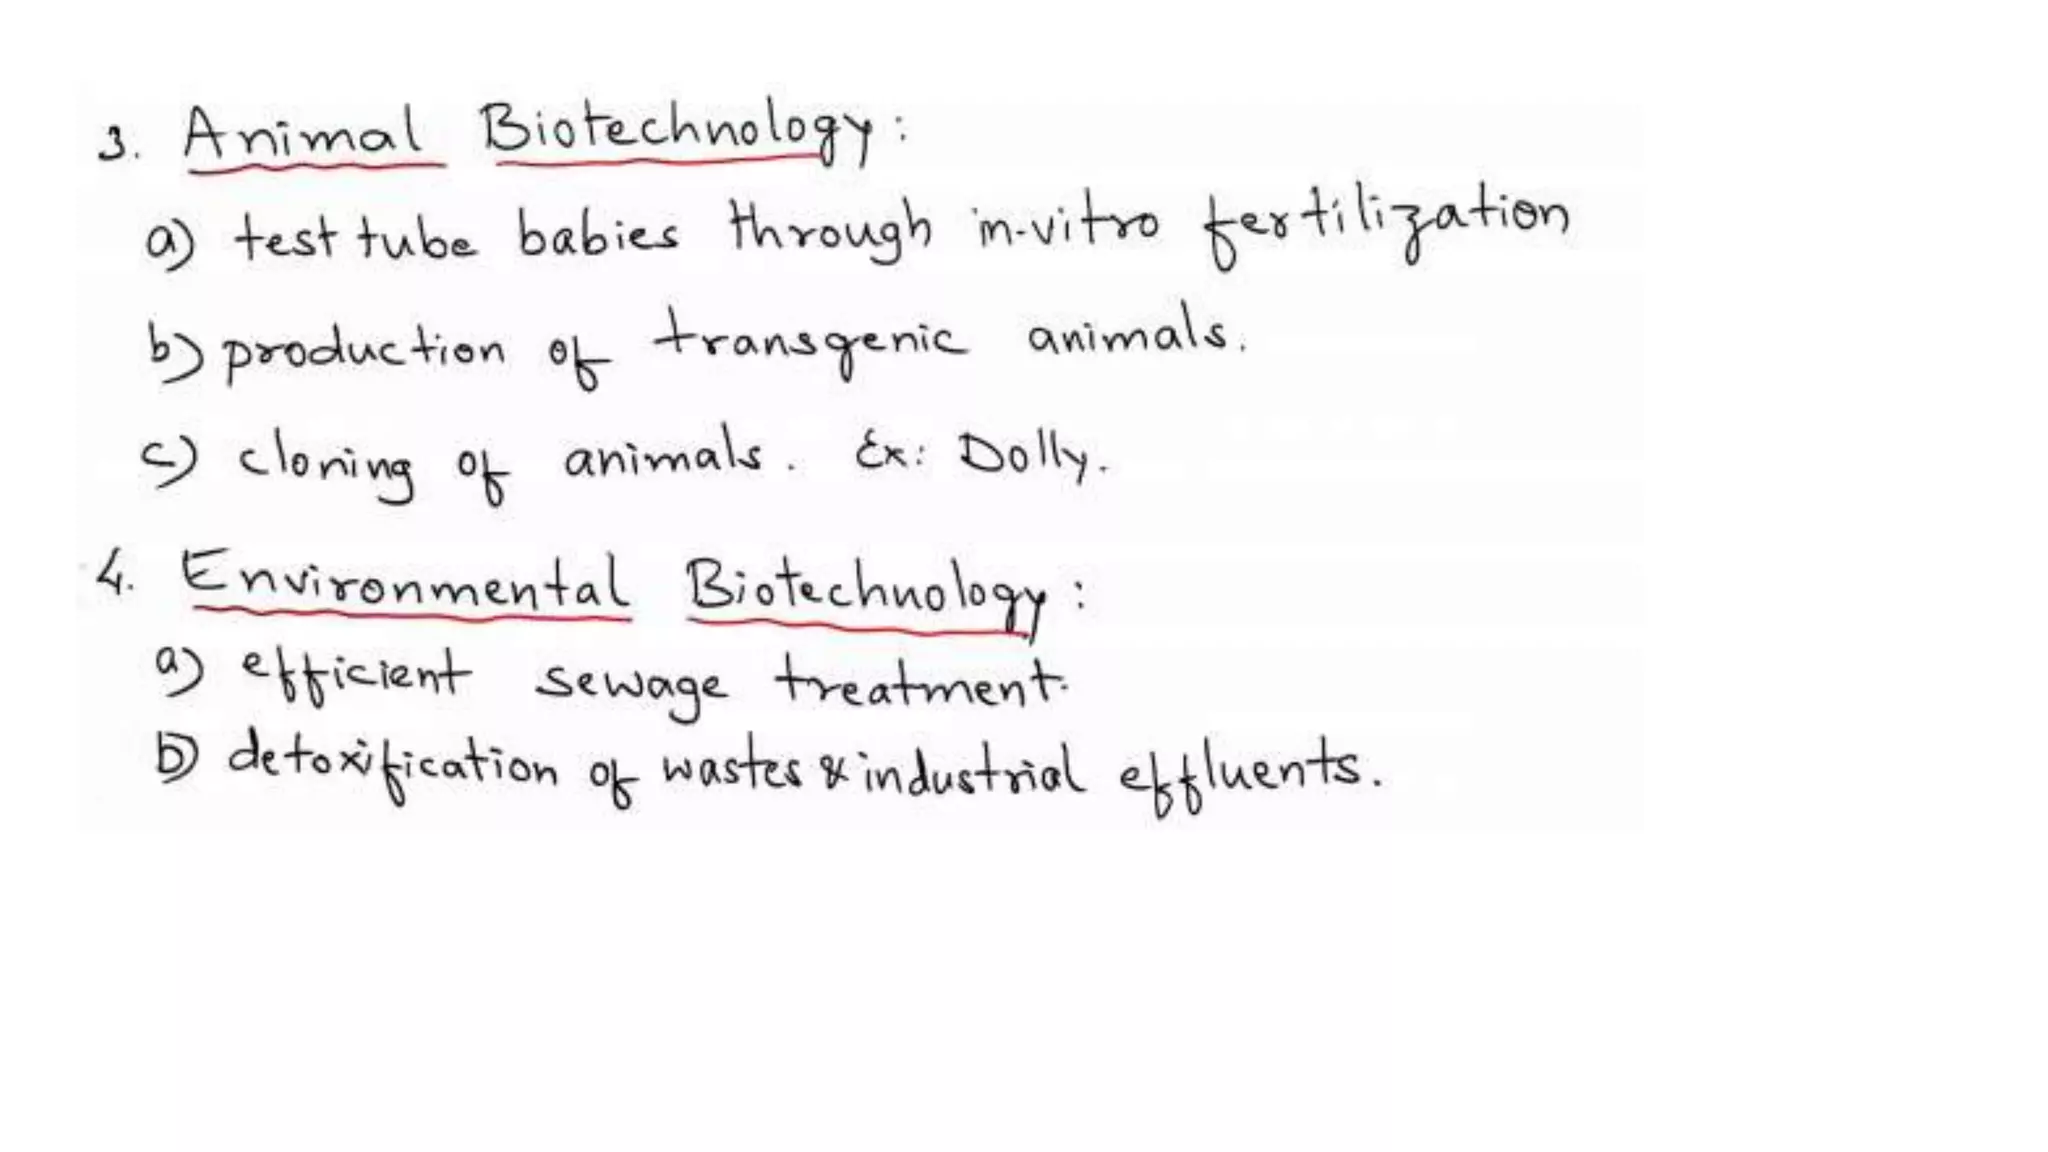 3. Animal Biotechnology:
a) test tube babies through in-vitro fertilization
b) production of transgenic animals.
c) cloning of animals. Ex: Dolly.
4. Environmental Biotechnology:
a) efficient sewage treatment.
b) detoxification of wastes & industrial effluents.